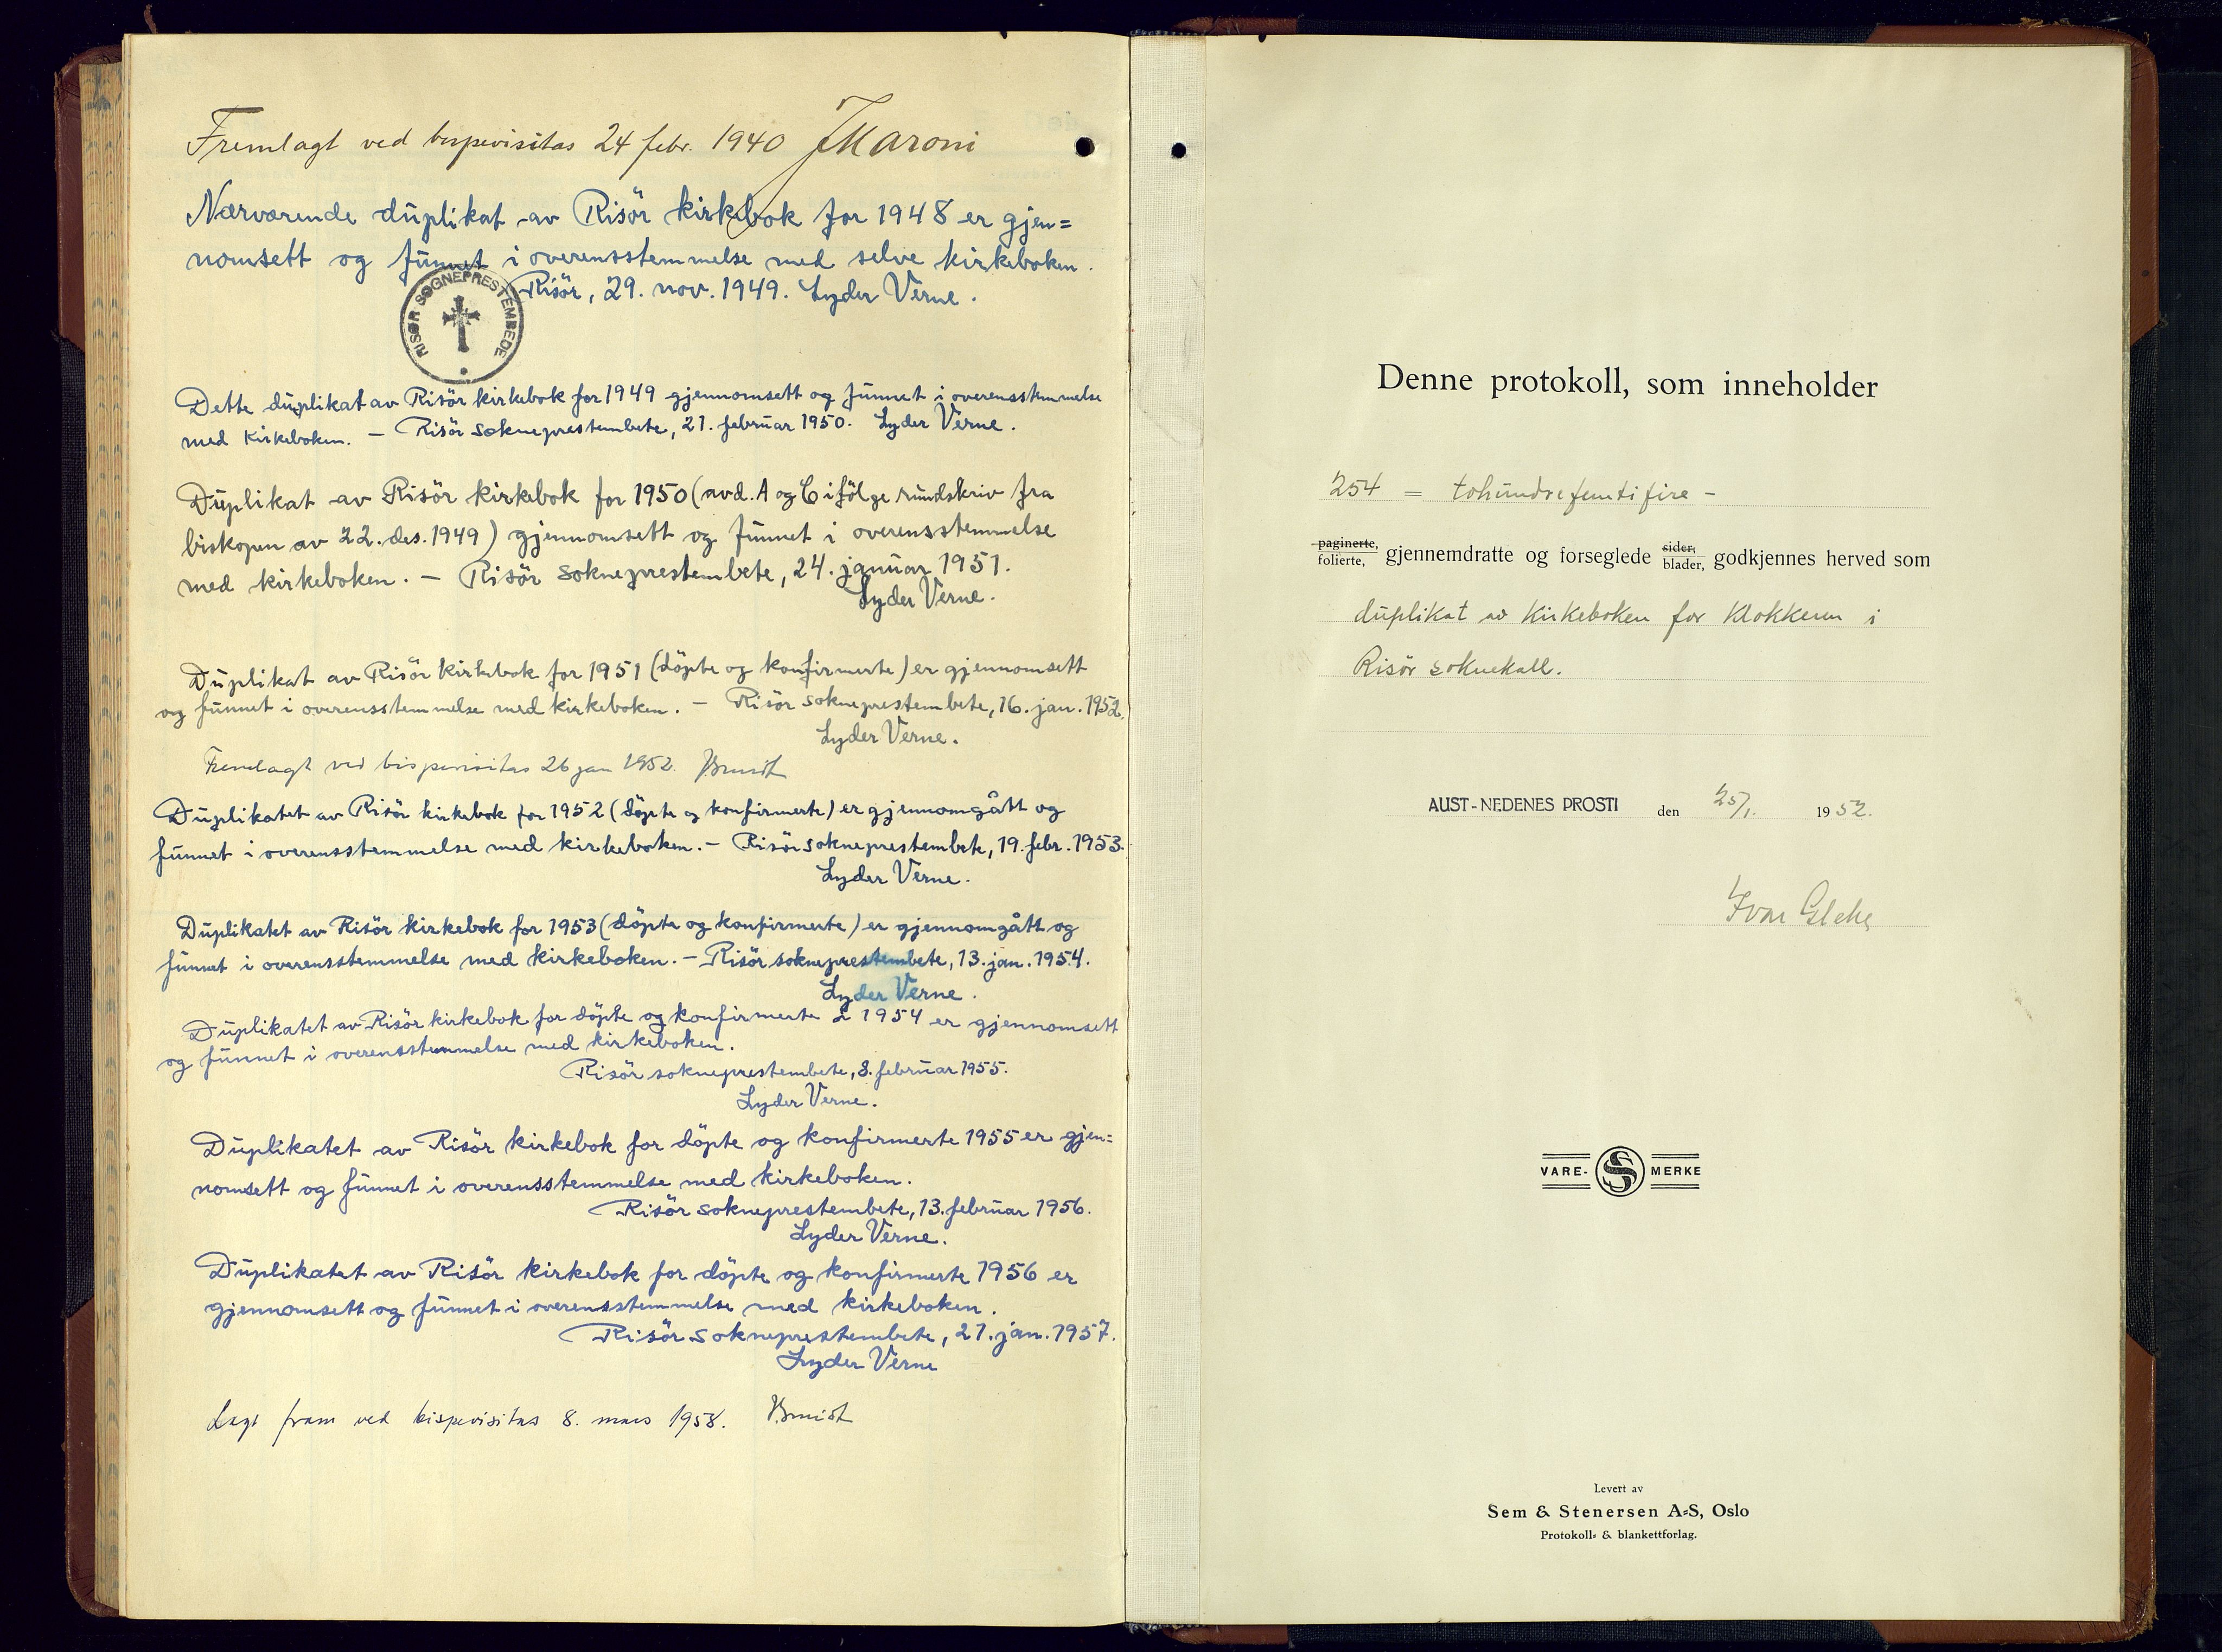 Fremlagt ved bispevisitas 24 febr. 1940 JMaroni
Nærværende duplikat av Risör kirkebok for 1948 er gjen=
nomsett og funnet i overensstemmelse med selve kirkeboken.
Risör, 29. nov. 1949. Lyder Verne.
RISØR SOGNEPRESTEMBEDE
Dette duplikat av Risör kirkebok for 1949 gjennomsett og funnet i overensstemmelse
med kirkeboken. – Risör sokneprestembete, 21. februar 1950. Lyder Verne.
Duplikat av Risör kirkebok for 1950 (avd. A og C ifölge rundskriv fra
biskopen av 22. des. 1949) gjennomsett og funnet i overensstemmelse
med kirkeboken. – Risör sokneprestembete, 24. januar 1951.
Lyder Verne.
Duplikat av Risör kirkebok for 1951 (döpte og konfirmerte) er gjennomsett
og funnet i overensstemmelse med kirkeboken. – Risör sokneprestembete, 16. jan. 1952.
Lyder Verne.
Fremlagt ved bispevisitas 26 jan 1952.
Duplikatet av Risör kirkebok for 1952 (döpte og konfirmerte) er gjennomgått og
funnet i overensstemmelse med kirkeboken. – Risör sokneprestembete, 19. febr. 1953.
Lyder Verne.
Duplikatet av Risör kirkebok for 1953 (döpte og konfirmerte) er gjennomgått og
funnet i overensstemmelse med kirkeboken. – Risör sokneprestembete, 13. jan. 1954.
Lyder Verne.
Duplikatet av Risör kirkebok for döpte og konfirmerte i 1954 er gjennomsett
og funnet i overensstemmelse med kirkeboken.
Risör sokneprestembete, 8. februar 1955.
Lyder Verne.
Duplikatet av Risör kirkebok for döpte og konfirmerte 1955 er gjen=
nomsett og funnet i overensstemmelse med kirkeboken.
Risör sokneprestembete, 13. februar 1956.
Lyder Verne.
Duplikatet av Risör kirkebok for döpte og konfirmerte 1956 er
gjennomsett og funnet i overensstemmelse med kirkeboken.
Risör sokneprestembete, 21. jan. 1957.
Lyder Verne
Lagt fram ved bispevisitas 8. mars 1958.
Denne protokoll, som inneholder
254 = tohundrefemtifire –
paginerte, folierte, gjennemdratte og forseglede sider, blader, godkjennes herved som
duplikat av kirkeboken for klokkeren i
Risör soknekall.
AUST-NEDENES PROSTI den 25/1. 1952.
Ivar
VARE- S MERKE
Levert av
Sem & Stenersen A-S, Oslo
Protokoll- & blankettforlag.